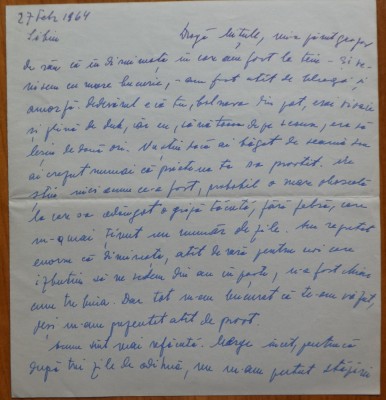 27 Febr 1964
Sibiu
Dragă Puțule, mi-a părut grozav
de rău că în dimineața în care am fort la tine – și ve-
nisem cu mare bucurie, – am fost atît de bleagă, și
amorfă. Adevărul e că tu, bolnava din pat, erai vioaie
și plină de duh, iar eu, căzătura de pe scaun, era să
leșin de două ori. Nu știu dacă ai băgat de seamă sau
ai crezut numai că prietena ta s-a prostit. Nu
știu nici acum ce-a fost, probabil o mare oboseală
la care s-a adăugat o gripă tăcută, fără febră, care
m-a mai ținut un număr de zile. Am regretat
enorm că dimineața, atît de rară pentru noi care
izbutim să ne vedem din an în paște, n-a fost chiar
cum trebuia. Dar tot m-am bucurat că te-am văzut,
deși m-am prezentat atît de prost.
Acum sînt mai refăcută. Merge încet, pentrucă
după trei zile de odihnă, nu m-am putut stăpîni